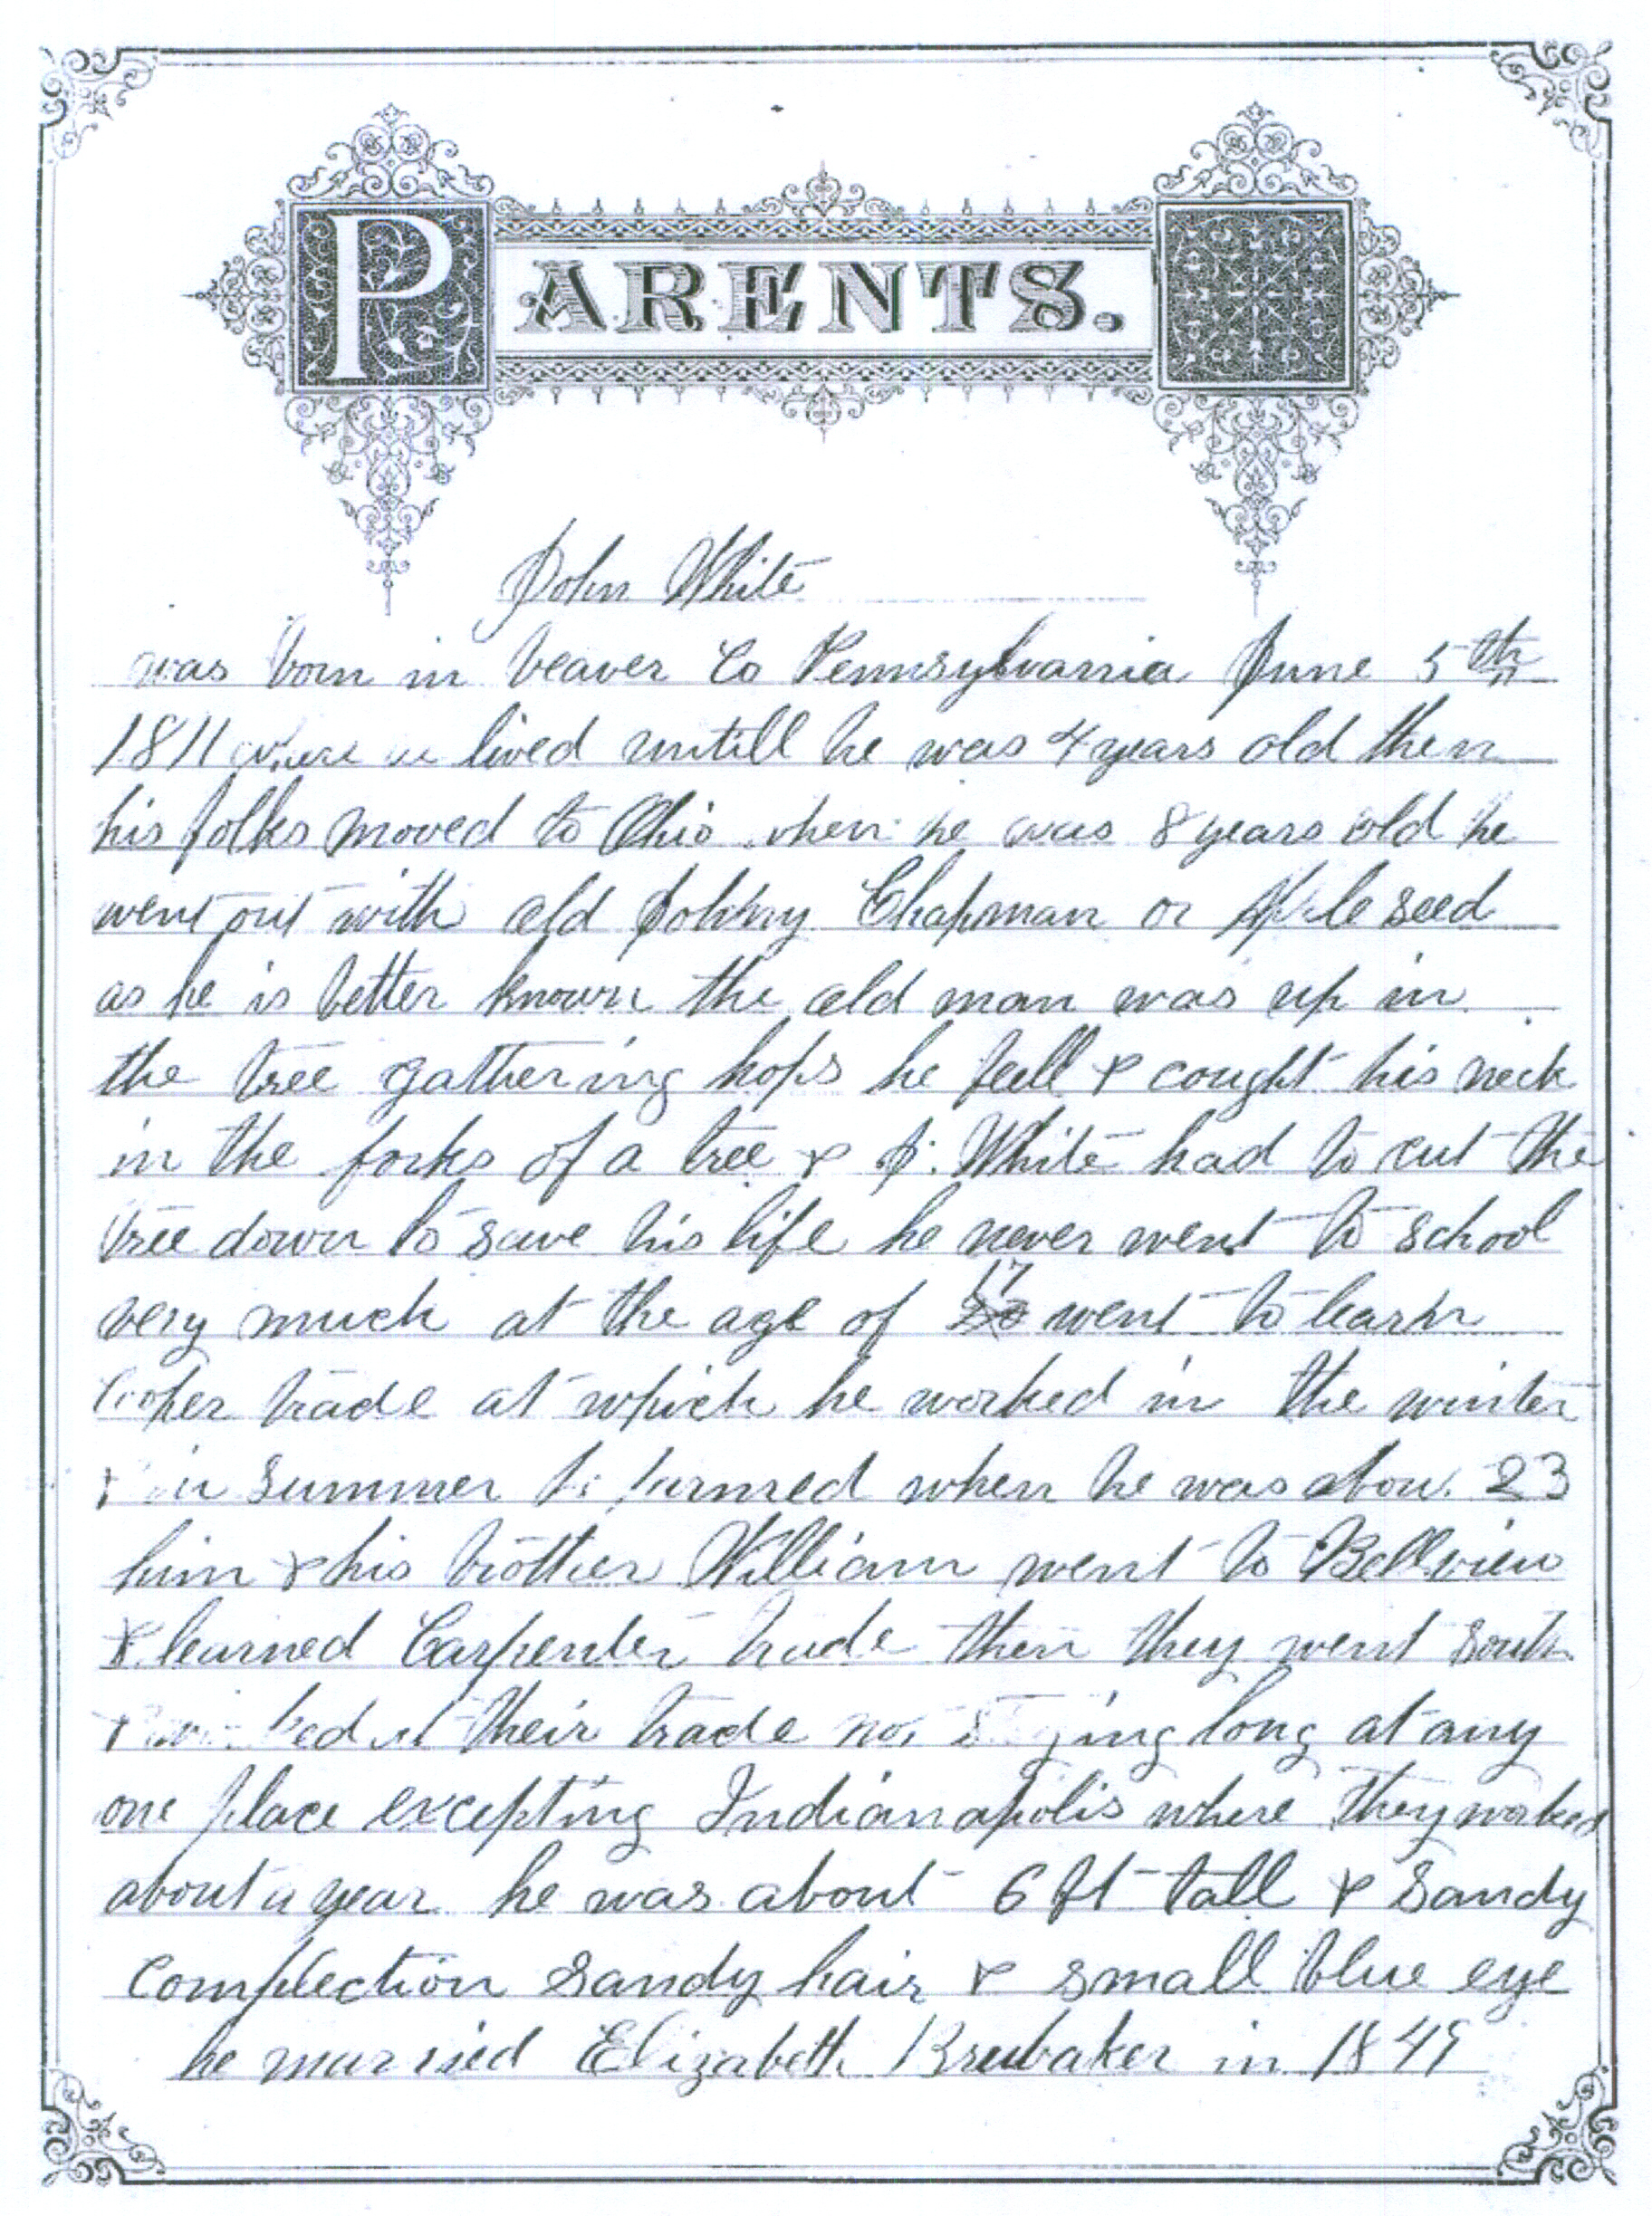 PARENTS.
John White
was born in beaver Co Pennsylvania June 5th
1811 where he lived untill he was 4 years old then
his folks moved to Ohio when he was 8 years old he
went out with old Johnny Chapman or Apleseed
as he is better known the old man was up in
the tree gathering hops he fell & cought his neck
in the forks of a tree & J. White had to cut the
tree down to save his life he never went to school
very much at the age of 17 went to learn
Cooper trade at which he worked in the winter
& in summer he farmed when he was about 23
him & his brother William went to Bellview
& learned Carpenter trade then they went south
& worked at their trade not staying long at any
one place excepting Indianapolis where they worked
about a year he was about 6 ft tall & Sandy
Complection Sandy hair & small blue eye
he married Elizabeth Brubaker in 1849